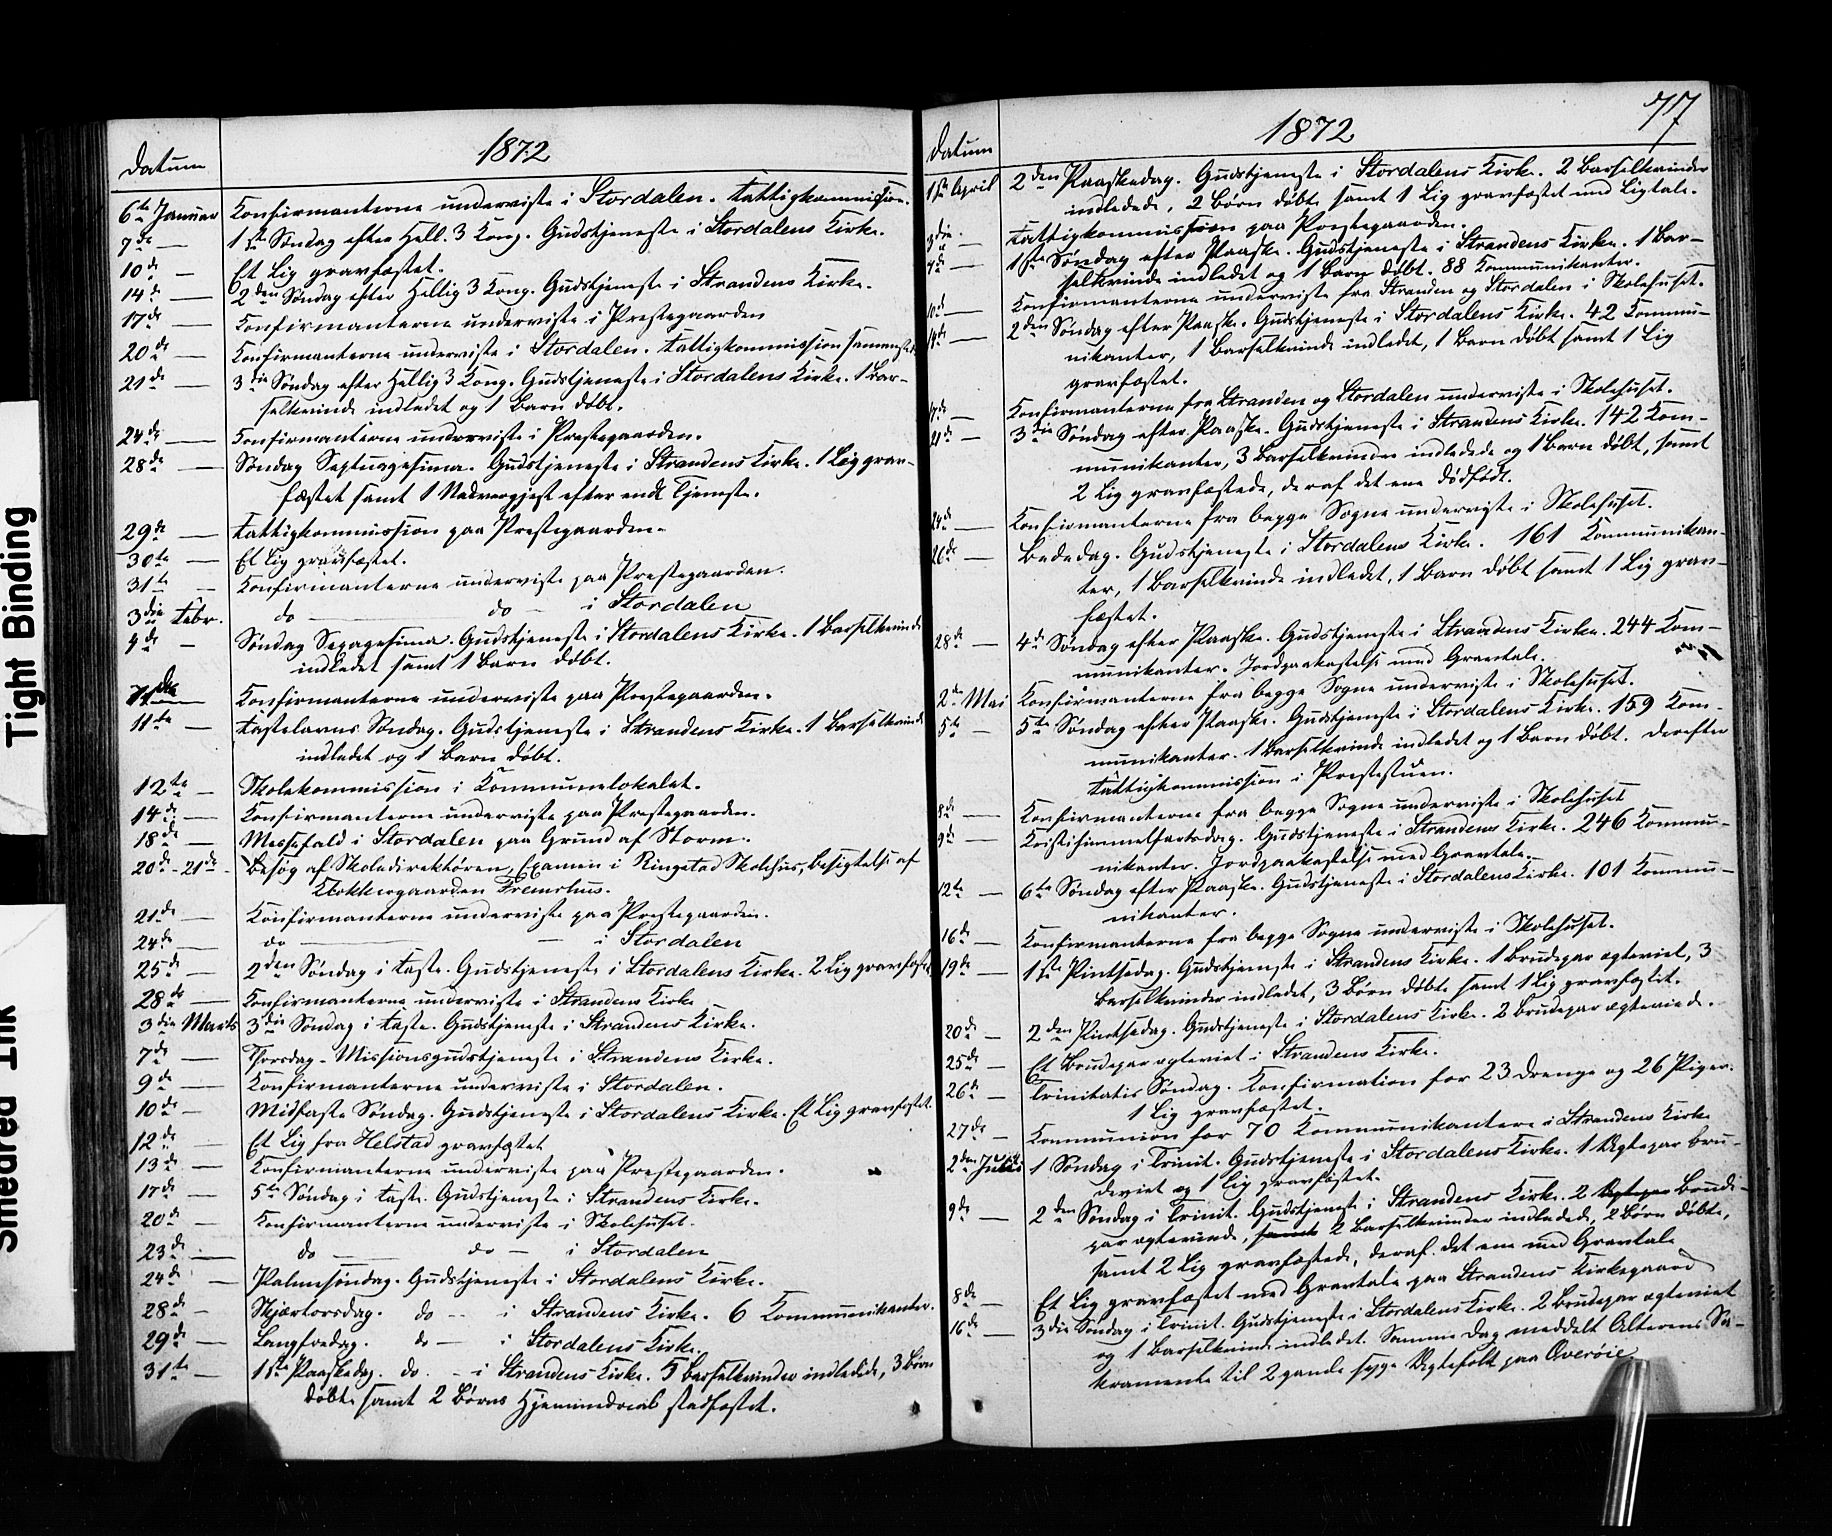 Tight Binding
Smeared Ink
1872
Datum
6te Januar Konfirmanterne underviste i Stordalen. Fattigkommission.
7de — 1ste Søndag efter Hell. 3 Kong. Gudstjeneste i Stordalens Kirke.
10de — Et Lig gravfæstet.
14de — 2den Søndag efter Hellig 3 Kong. Gudstjeneste i Strandens Kirke.
17de — Konfirmanterne underviste i Præstegaarden
20de — Konfirmanterne underviste i Stordalen. Fattigkommission sammesteds
21de — 3die Søndag efter Hellig 3 Kong. Gudstjeneste i Stordalens Kirke. 1 Bar-
selkvinde indledet og 1 Barn døbt.
24de — Konfirmanterne underviste i Præstegaarden.
28de — Søndag Septuagesima. Gudstjeneste i Strandens Kirke. 1 Lig grav-
fæstet samt 1 Nadvergjest efter endt Tjeneste.
29de — Fattigkommission paa Præstegaarden.
30te — Et Lig gravfæstet.
31te — Konfirmanterne underviste paa Præstegaarden.
3die Febr. do — do — i Stordalen
4de — Søndag Sexagesima. Gudstjeneste i Stordalens Kirke. 1 Barselkvinde
indledet samt 1 Barn døbt.
7de — Konfirmanterne underviste paa Præstegaarden.
11te — Fastelavns Søndag. Gudstjeneste i Strandens Kirke. 1 Barselkvinde
indledet og 1 Barn døbt.
12te — Skolekommission i Kommunelokalet.
14de — Konfirmanterne underviste paa Præstegaarden.
18de — Messefald i Stordalen paa Grund af Storm.
20de-21de — Besøg af Skoledirektøren, Examen i Ringstad Skolehus, Besigtelse af
Klokkergaarden Fremshus.
21de — Konfirmanterne underviste paa Præstegaarden.
24de — do — — i Stordalen
25de — 2den Søndag i Faste. Gudstjeneste i Stordalens Kirke. 2 Lig gravfæstet
28de — Konfirmanterne underviste i Strandens Kirke
3die Marts 3die Søndag i Faste. Gudstjeneste i Strandens Kirke.
7de — Torsdag - Missionsgudstjeneste i Strandens Kirke.
9de — Konfirmanterne underviste i Stordalen.
10de — Midfaste Søndag. Gudstjeneste i Stordalens Kirke. Et Lig gravfæstet.
12de — Et Lig fra Helstad gravfæstet
13de — Konfirmanterne underviste paa Præstegaarden.
17de — 5te Søndag i Faste. Gudstjeneste i Strandens Kirke.
20de — Konfirmanterne underviste i Skolehuset.
23de — do — do — i Stordalen
24de — Palmesøndag. Gudstjeneste i Stordalens Kirke.
28de — Skjærtorsdag. do — i Strandens Kirke. 6 Kommunikanter.
29de — Langfredag. do — i Stordalens Kirke.
31te — 1ste Paaskedag. do. - i Strandens Kirke. 5 Barselkvinder indledede, 3 Børn
døbte samt 2 Børns Hjemmedaab stadfæstet.
77
1872
Datum
1ste April 2den Paaskedag. Gudstjeneste i Stordalens Kirke. 2 Barselkvinder
indledede, 2 Børn døbte samt 1 Lig gravfæstet med Ligtale.
3die — Fattigkommission paa Præstegaarden.
7de — 1ste Søndag efter Paaske. Gudstjeneste i Strandens Kirke. 1 Bar-
selkvinde indledet og 1 Barn døbt. 88 Kommunikanter.
10de — Konfirmanterne underviste fra Stranden og Stordalen i Skolehuset.
14de — 2den Søndag efter Paaske. Gudstjeneste i Stordalens Kirke. 42 Kommu-
nikanter, 1 Barselkvinde indledet, 1 Barn døbt samt 1 Lig
gravfæstet.
17de — Konfirmanterne fra Stranden og Stordalen underviste i Skolehuset.
21de — 3die Søndag efter Paaske. Gudstjeneste i Strandens Kirke. 142 Kom-
munikanter, 3 Barselkvinder indledede og 1 Barn døbt, samt
2 Lig gravfæstede, deraf det ene dødfødt.
24de — Konfirmanterne fra begge Sogne underviste i Skolehuset.
26de — Bededag. Gudstjeneste i Stordalens Kirke. 161 Kommunikan-
ter, 1 Barselkvinde indledet, 1 Barn døbt samt 1 Lig grav-
fæstet.
28de — 4de Søndag efter Paaske. Gudstjeneste i Strandens Kirke. 244 Kom-
munikanter. Jordpaakastelse med Gravtale.
2den Mai Konfirmanterne fra begge Sogne underviste i Skolehuset.
5te — 5te Søndag efter Paaske. Gudstjeneste i Stordalens Kirke. 159 Kom-
munikanter. 1 Barselkvinde indledet og 1 Barn døbt. Derefter
Fattigkommission i Præstestuen.
8de — Konfirmanterne fra begge Sogne underviste i Skolehuset
9de — Kristihimmelfartsdag. Gudstjeneste i Strandens Kirke. 246 Kommu-
nikanter. Jordpaakastelse med Gravtale.
12te — 6te Søndag efter Paaske. Gudstjeneste i Stordalens Kirke. 101 Kommu-
nikanter.
16de — Konfirmanterne fra begge Sogne underviste i Skolehuset.
19de — 1ste Pintsedag. Gudstjeneste i Strandens Kirke. 1 Brudepar ægteviet, 3
Barselkvinder indledet, 3 Børn døbte samt 1 Lig gravfæstet.
20de — 2den Pintsedag. Gudstjeneste i Stordalens Kirke. 2 Brudepar ægteviede.
25de — Et Brudepar ægteviet i Strandens Kirke.
26de — Trinitatis Søndag. Konfirmation for 23 Drenge og 26 Piger.
1 Lig gravfæstet.
27de — Kommunion for 70 Kommunikantere i Strandens Kirke
2den Juni 1 Søndag i Trinit. Gudstjeneste i Stordalens Kirke. 1 Ægtepar bru-
deviet og 1 Lig gravfæstet.
9de — 2den Søndag i Trinit. Gudstjeneste i Strandens Kirke. 2 Ægtepar Brude-
par ægteviede, samt 2 Barselkvinder indledede, 2 Børn døbte,
samt 2 Lig gravfæstede, deraf det ene med Gravtale
8de — Et Lig gravfæstet med Gravtale paa Strandens Kirkegaard
16de — 3die Søndag i Trinit. Gudstjeneste i Stordalens Kirke. 2 Brudepar ægteviet
og 1 Barselkvinde indledet. Samme Dag meddelt Alterens Sa-
kramente til 2 gamle syge Ægtefolk paa Overøie